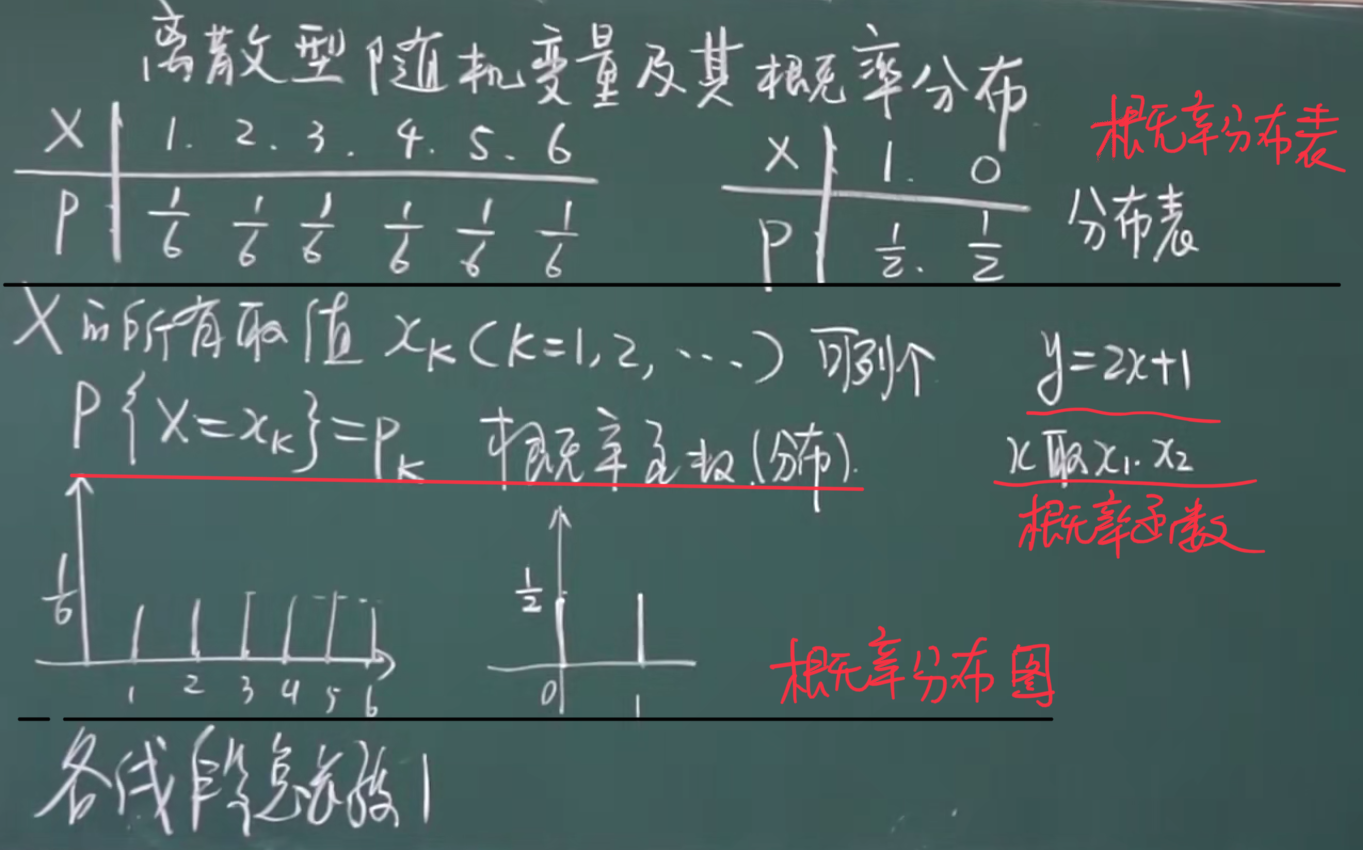 离散型随机变量及其概率分布
概率分布表
X 1. 2. 3. 4. 5. 6
P 1/6 1/6 1/6 1/6 1/6 1/6
X 1. 0
P 1/2. 1/2
分布表
X的所有取值 xₖ(k=1,2,…) 可列个
y=2x+1
P{X=xₖ}=pₖ 概率函数(分布).
x取x₁.x₂
概率函数
1/6
1 2 3 4 5 6
1/2
0 1
概率分布图
各线段总长度1